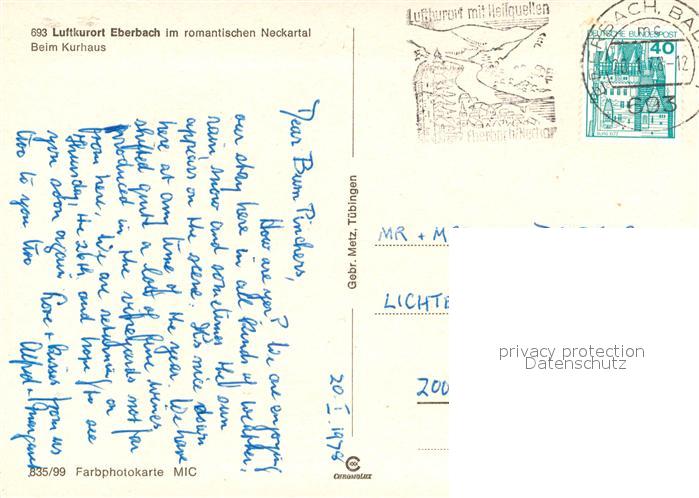 693 Luftkurort Eberbach im romantischen Neckartal
Beim Kurhaus
Luftkurort mit Heilquellen
Eberbach/Neckar
RBACH, BA
-12
693
DEUTSCHE BUNDESPOST
40
Dear Bum Pinchers,
How are you? We are enjoying
our stay here in all kinds of weather,
rain, snow and sometimes the sun
appears on the scene. It's nice down
here at any time of the year. We have
shifted quite a lot of fine wines
produced in the vineyards not far
from here. We are returning on
Thursday, the 26th and hope to see
you soon again. Love + kisses from us
two to you two
Alfred + Margaret
20.I.1978
Gebr. Metz, Tübingen
MR + M
LICHTE
200
privacy protection
Datenschutz
835/99 Farbphotokarte MIC
CHROMOLUX